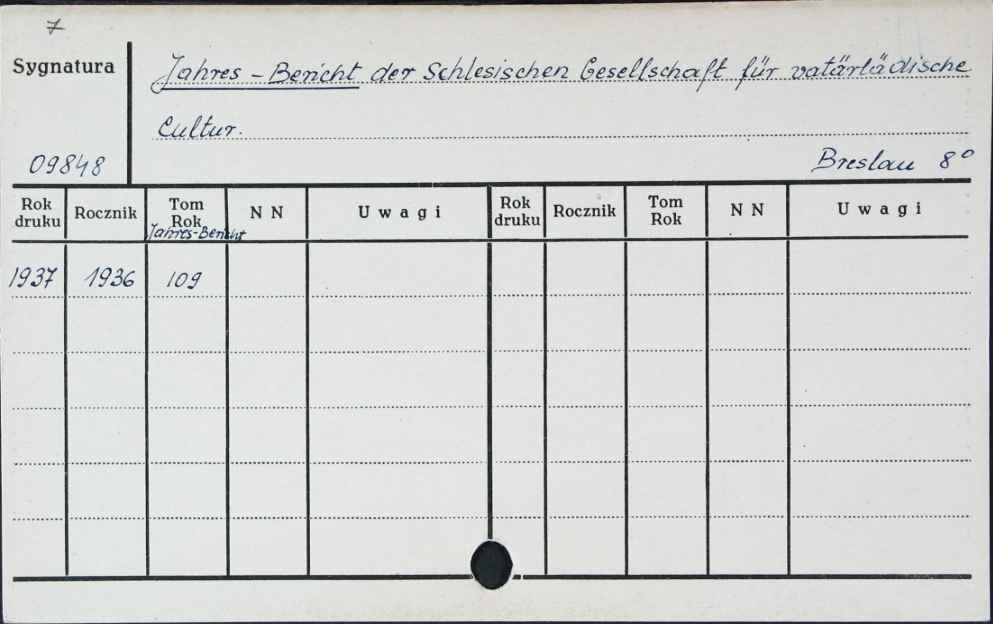 7
Sygnatura
Jahres - Bericht der Schlesischen Gesellschaft für vatärlädische
Cultur.
09848
Breslau 8°
Rok druku Rocznik Tom Rok Jahres-Bericht N N U w a g i Rok druku Rocznik Tom Rok N N U w a g i
1937 1936 109